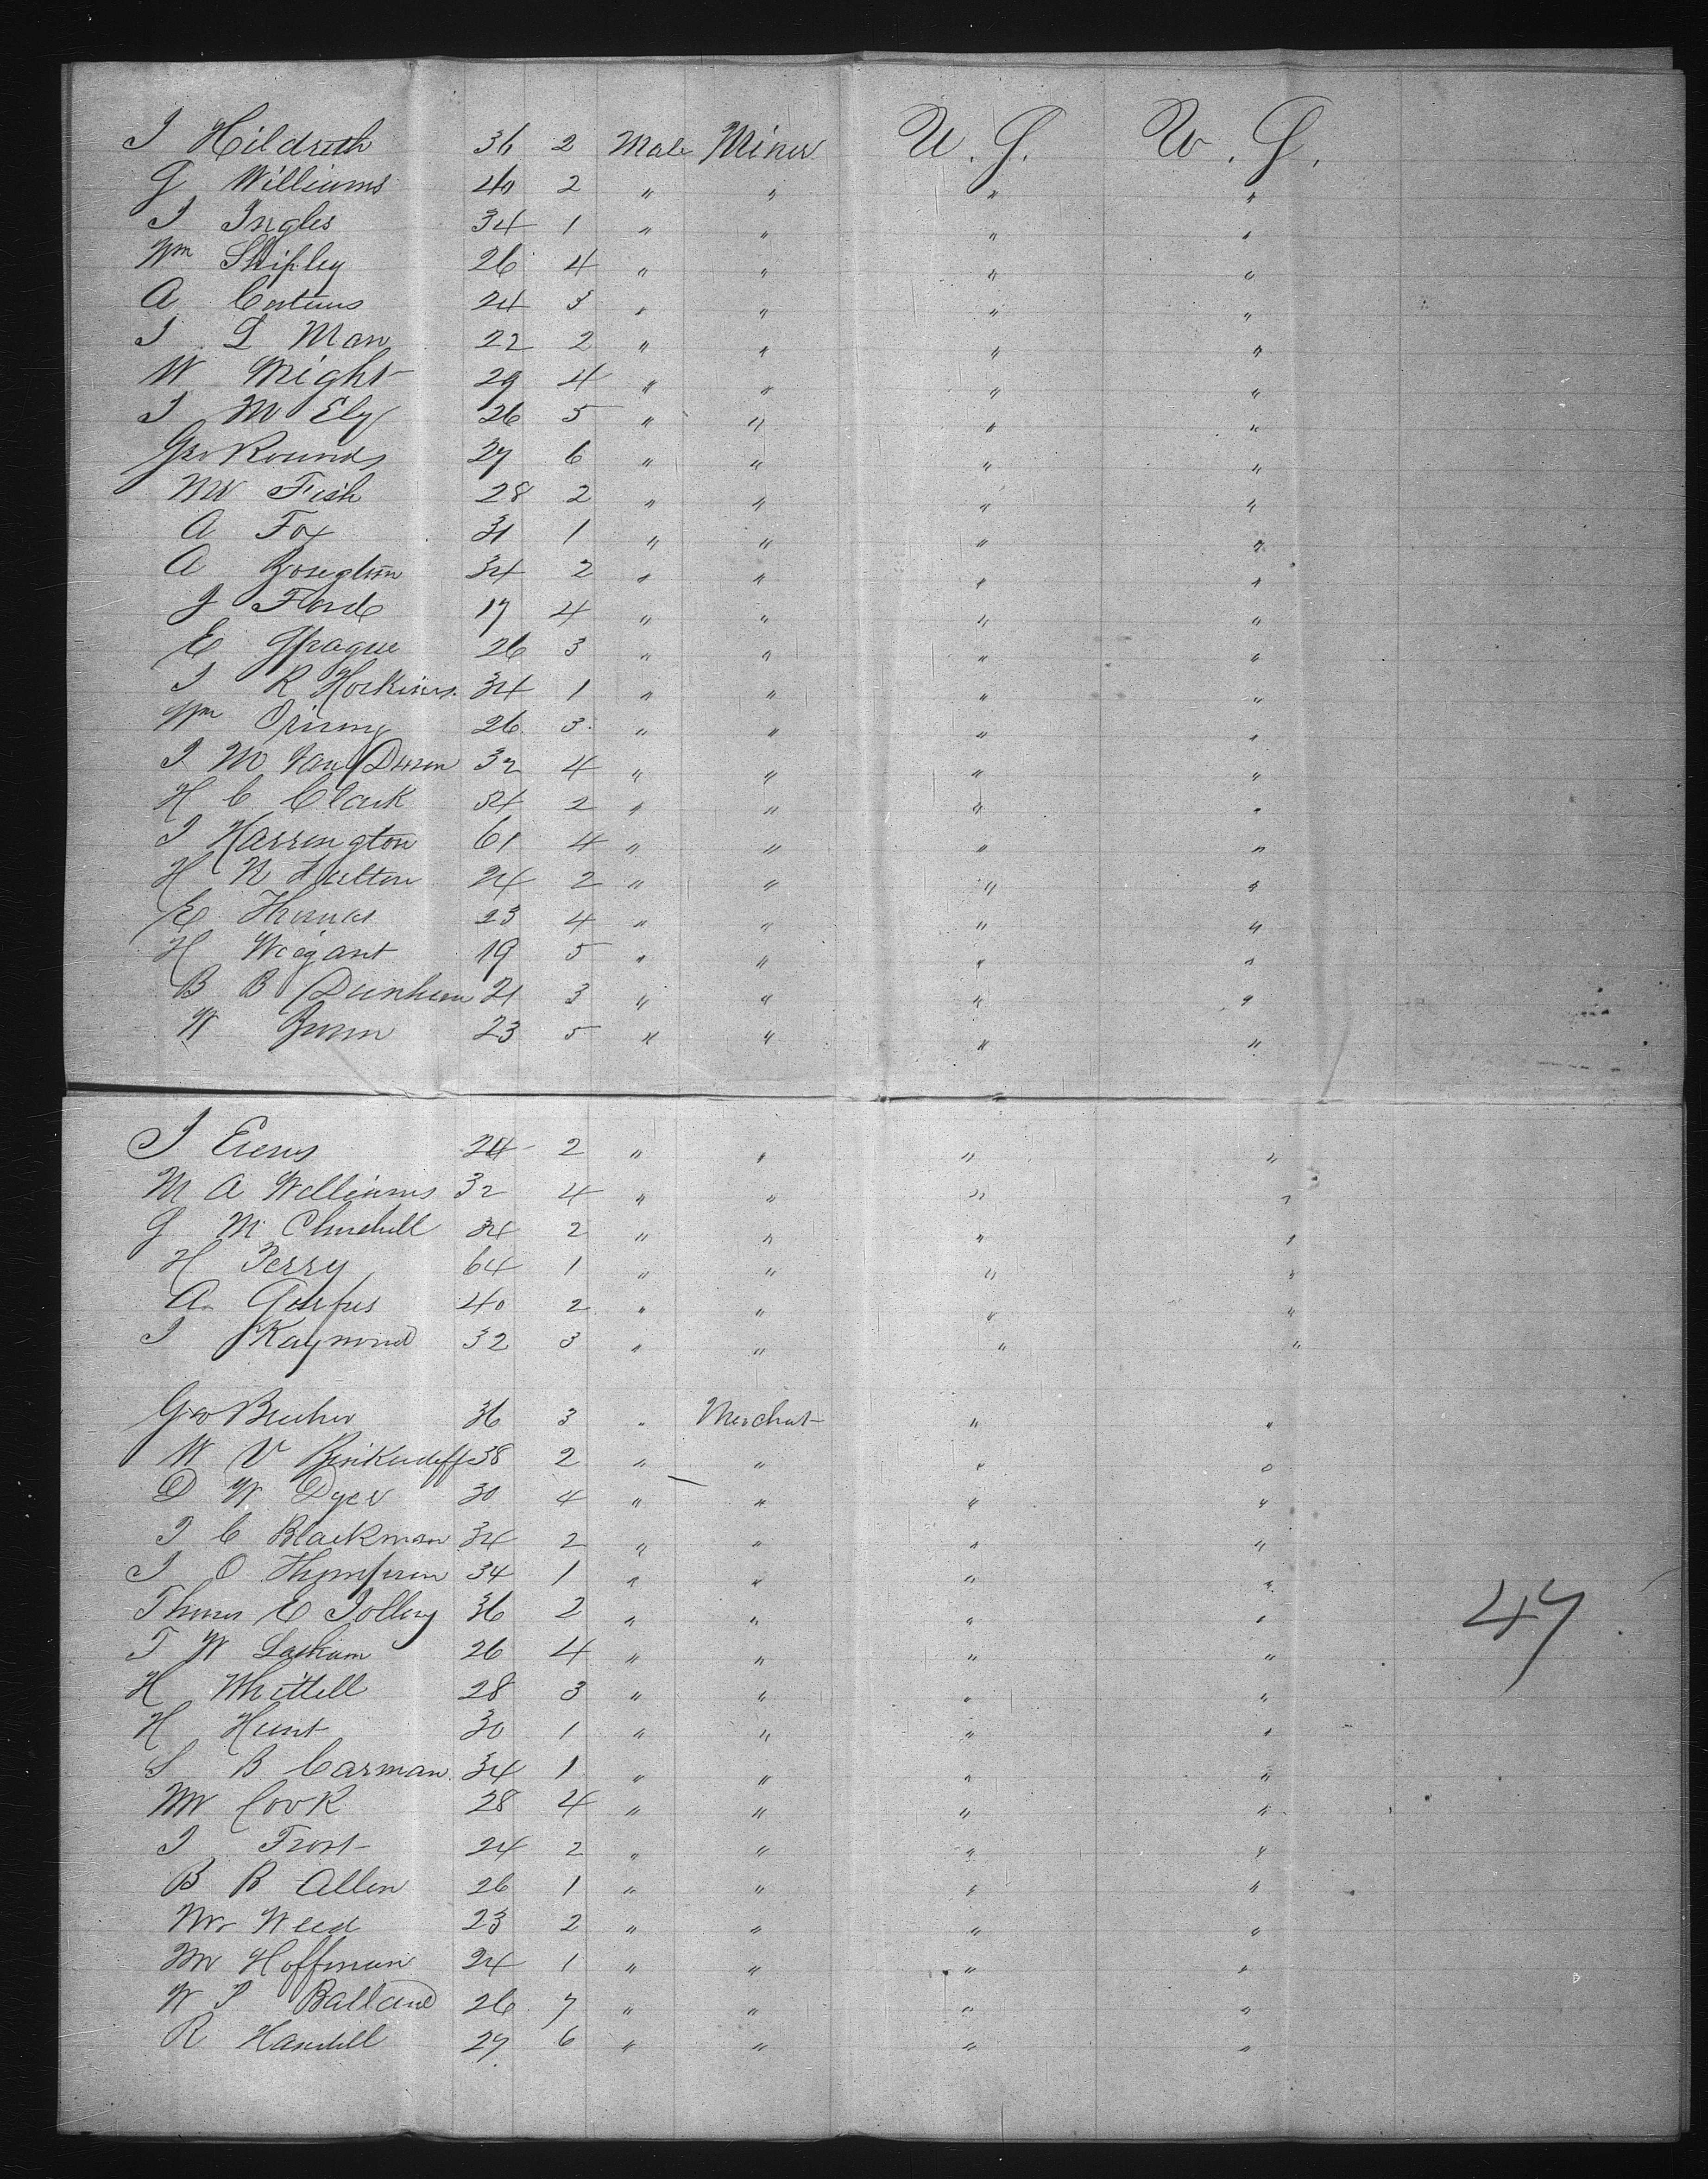 J Hildreth 36 2 Male Miner U. S. U. S.
G Williams 40 2 " " " "
J Ingles 34 1 " " " "
Wm Shipley 26 4 " " " "
A 24 3 " " " "
J L Man 22 2 " " " "
W Wright 29 4 " " " "
J M Ely 26 5 " " " "
Geo Rounds 27 6 " " " "
Mr Fish 28 2 " " " "
A Fox 31 1 " " " "
A 34 2 " " " "
J Ford 17 4 " " " "
E Sprague 26 3 " " " "
J R Hoskins 34 1 " " " "
Wm 26 3 " " " "
J M Van Dusen 32 4 " " " "
H C Clark 34 2 " " " "
J Harrington 61 4 " " " "
H N Fulton 24 2 " " " "
E Thomas 23 4 " " " "
H Wiegant 19 5 " " " "
B B Dunham 21 3 " " " "
W 23 5 " " " "
J Evens 24 2 " " " "
M A Williams 32 4 " " " "
G M Churchill 34 2 " " " "
H Perry 64 1 " " " "
A 40 2 " " " "
J Raymond 32 3 " " " "
Geo Beecher 36 3 " Merchat " "
W V 38 2 " " " "
D W Dyer 30 4 " " " "
J C Blackman 34 2 " " " "
J O Thompson 34 1 " " " "
Thomas E Jolley 36 2 " " " "
47
T W Lasham 26 4 " " " "
H Whittell 28 3 " " " "
H Hunt 30 1 " " " "
S B Carman 34 1 " " " "
Mr Cook 28 4 " " " "
J Frost 24 2 " " " "
B B Allen 26 1 " " " "
Mr Weed 23 2 " " " "
Mr Hoffman 24 1 " " " "
W J Balland 26 7 " " " "
R 27 6 " " " "